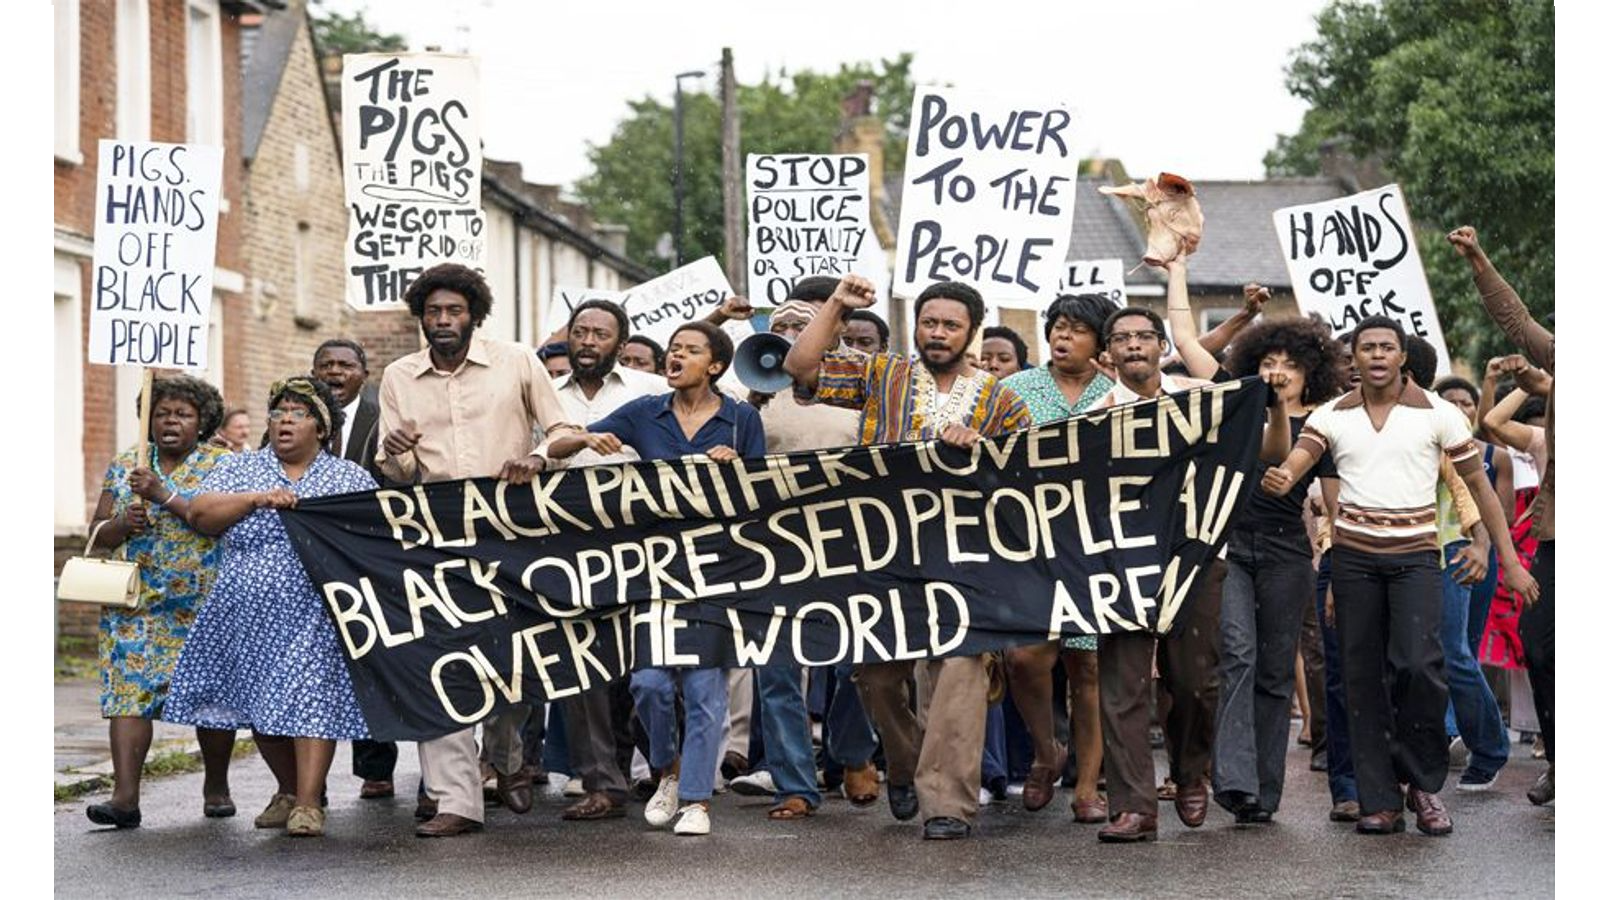 PIGS.
HANDS
OFF
BLACK
PEOPLE
THE
PIGS
THE PIGS
WE GOT TO
GET RID OFF
THE
Mangro
STOP
POLICE
BRUTALITY
OR START
POWER
TO THE
PEOPLE
HANDS
OFF
BLACK PANTHER MOVEMENT
BLACK OPPRESSED PEOPLE All
OVER THE WORLD ARE